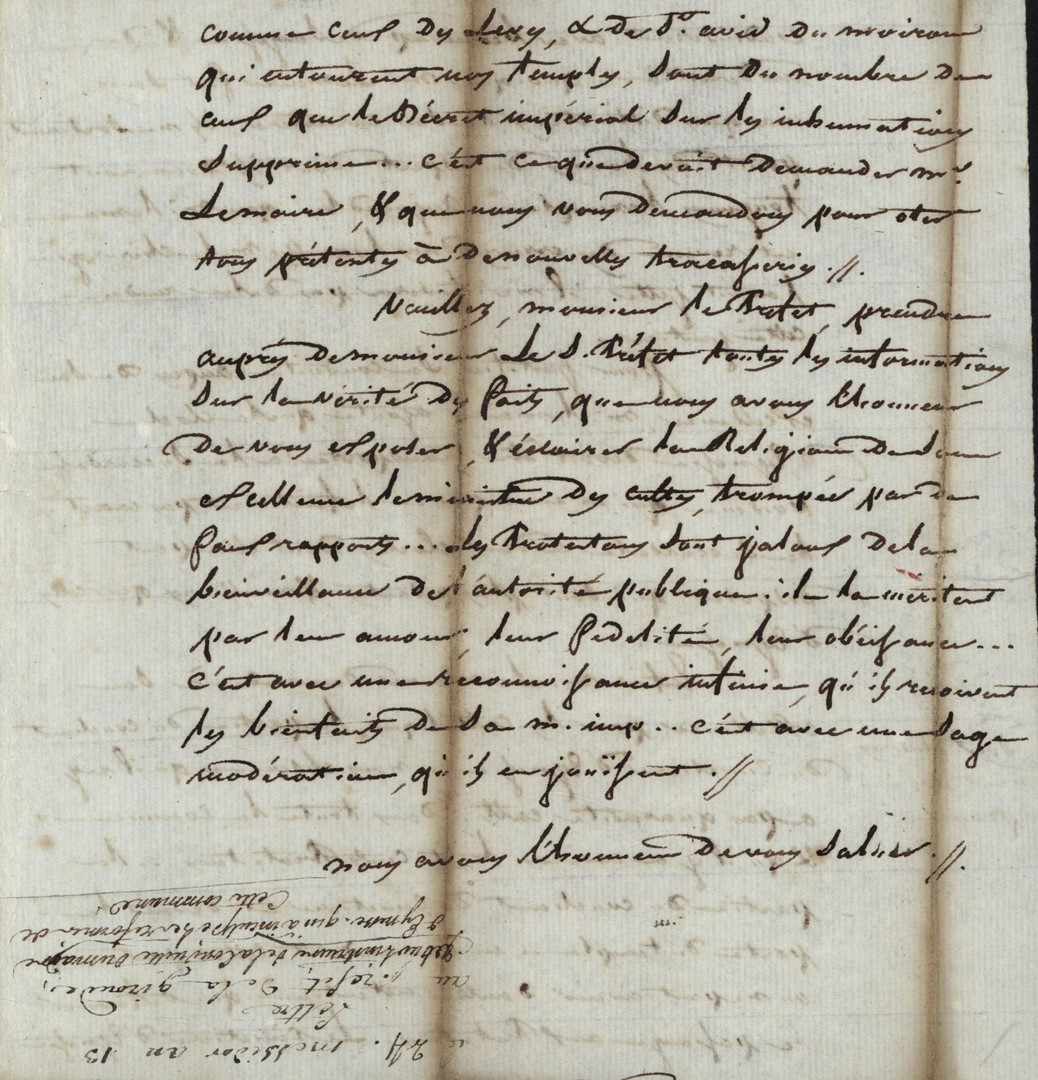 comme ceux, des Levés, & de St. avid du moiron
qui entourent nos temples, sont du nombre de
ceux que le Décret impérial sur les inhumations
supprime... c'est ce que devait demander mr.
Lemaire, & que nous vous demandons pour oter
tous prétextes à de nouvelles tracasseries.//.
Veuillez, monsieur le Préfet, prendre
auprés de monsieur Le S. Préfet toutes les informations
sur la vérité des faits, que nous avons l'honneur
de vous exposer, & éclairer la Religion de son
excellence le ministre des cultes, trompée par de
faux rapports... les Protestans sont jaloux de la
bienveillance de l'autorité publique. ils la méritent
par leur amour, leur fidelité, leur obéissance...
c'est avec une réconnoissance infinie, qu'ils recoivent
les bienfaits de sa m. imp.. c'est avec une sage
modération, qu'ils en jouïssent.//
nous avons l'honneur de vous saluer.//.
le 24. messidor an 13
Lettre
au préfet de la gironde,
de la du maire
qui a inculpé les reformés de
Cette commune.